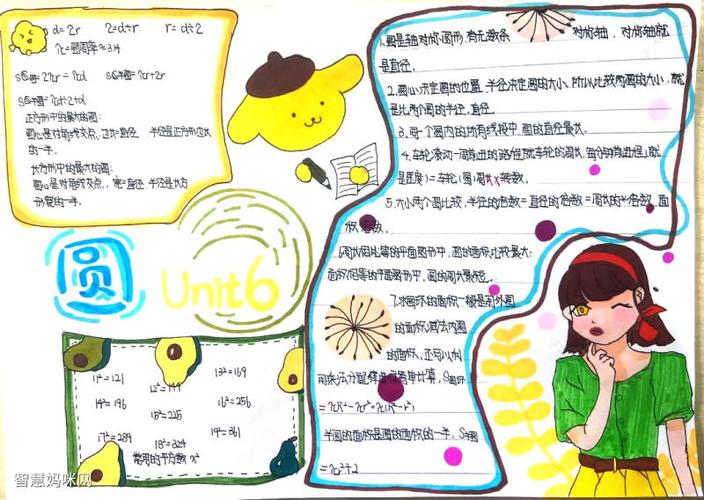 d=2r 2=d÷r r=d÷2
π=圆周率≈3.14
正方形中的最大的圆:
圆心是对角线交点, 直径 半径是正方形边长
的一半.
长方形中的最大的圆:
圆心是对角线交点, 宽=直径 半径是长方
形宽的一半.
圆
Unit6
11²=121
13²=169
14²=196
15²=225
16²=256
17²=289
18²=324
19²=361
常用的平方数
1.圆是轴对称图形,有无数条 对称轴, 对称轴就
是直径.
2.圆心决定圆的位置,半径决定圆的大小,所以比较两圆的大小,就
是比两个圆的半径,直径.
3.同一个圆内的所有线段中,圆的直径最长.
4.车轮滚动一周走出的路程就车轮的周长,每分钟前进程(就
是速度)=车轮(圆)周长×转数.
5.大小两个圆比较,半径的倍数=直径的倍数=周长的倍数,面
积 倍数.
周长相等的平面图形中,圆的面积比较最大;
面积相等的平面图形中,圆的周长最短.
7.求圆环的面积一般是用外圆
的面积减去内圆
的面积,还可以利
用乘法分配律进行简单计算,S圆环
=πR²-πr²=π(R²-r²)
半圆的面积是圆的面积的一半,S半圆
=πr²÷2
智慧妈咪网